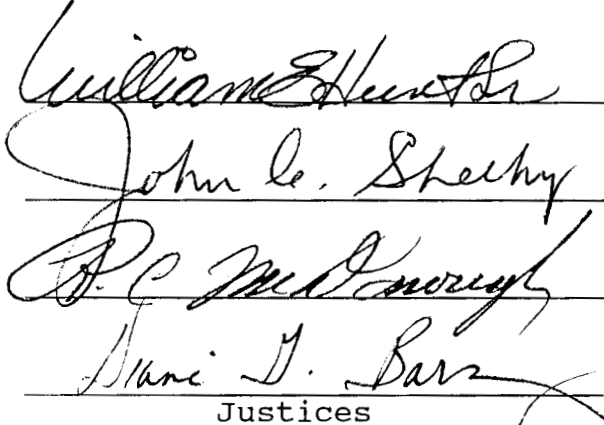 William E Hunt Sr
John C. Sheehy
R. C McDonough
Diane G. Barz
Justices